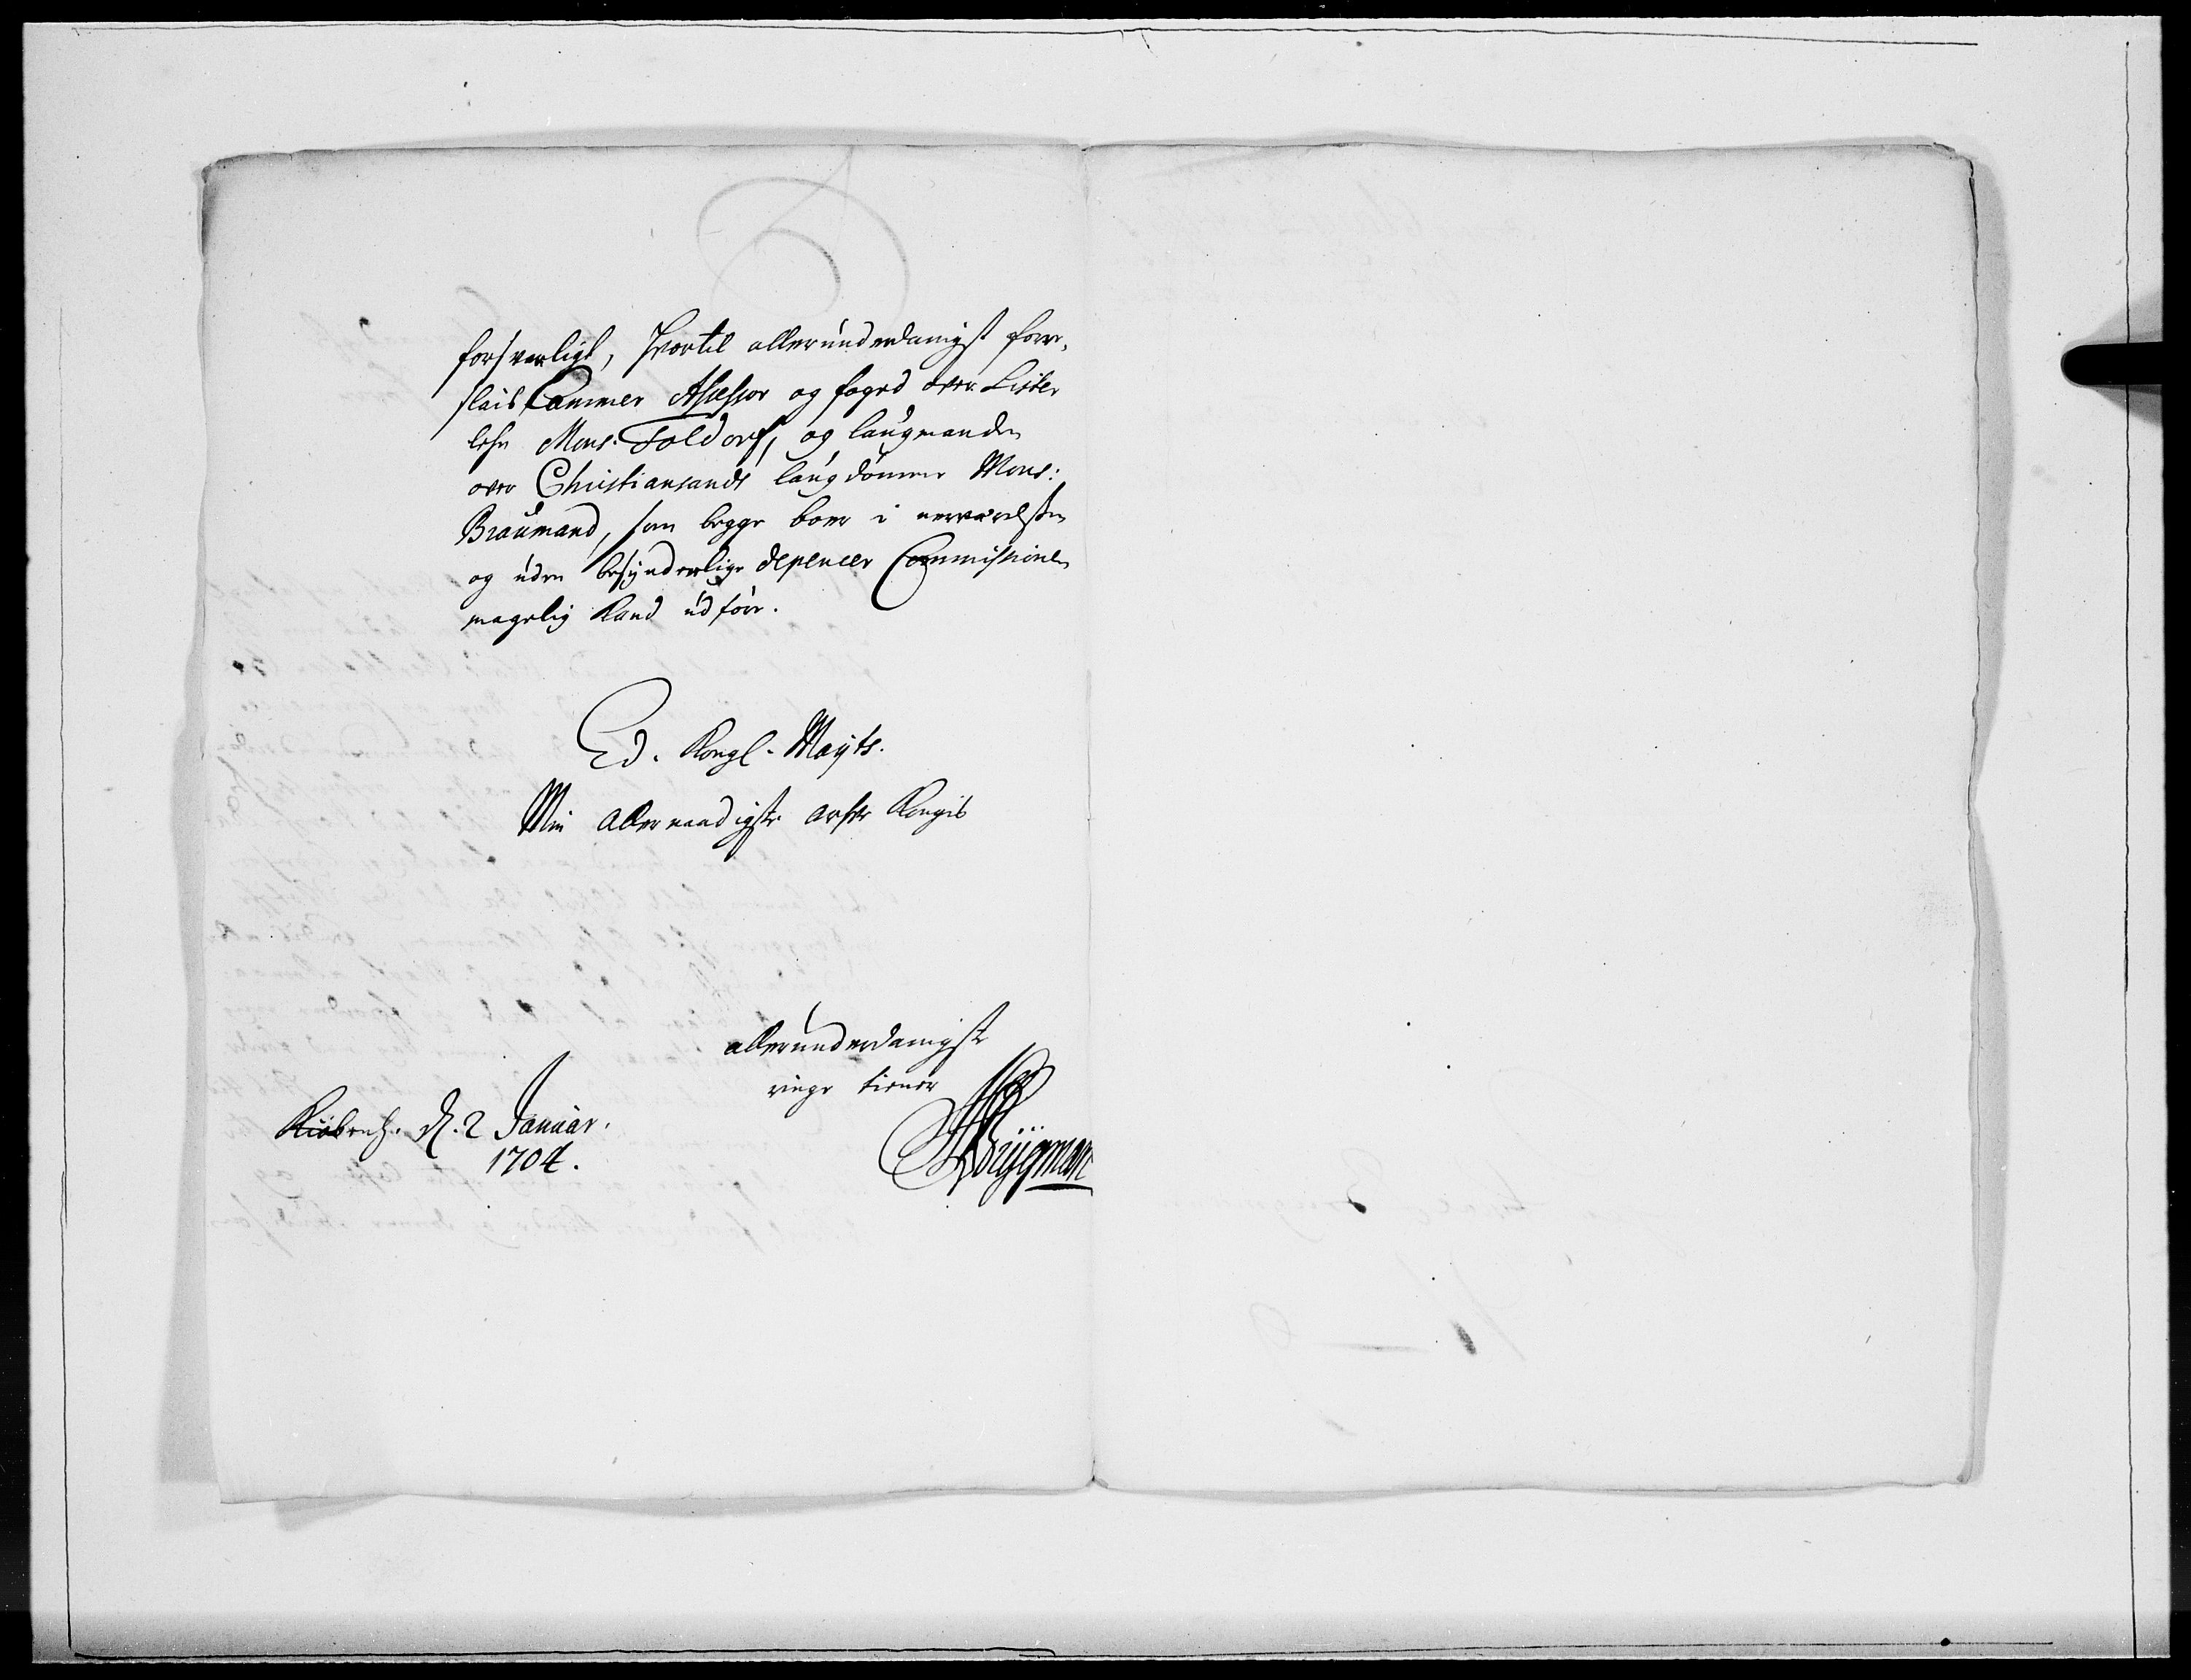 forsvarligt, Hvortil allerunderdanigst fore,
slais Cammer Assessor og foged over Lister
lehn Mons: Toldorf, og laugmanden
over Christiansands laugdömme Mons:
Braumand, som begge boer i nerværelsen
og uden besynderlige depencer Commissionen
magelig Kand udföre.
Ed. Kongl. Mayts.
Min Allernaadigste arfve Kongis
allerunderdanigste
ringe tiener
Kiöbenh. d. 2 Januar.
1704.
Brügman